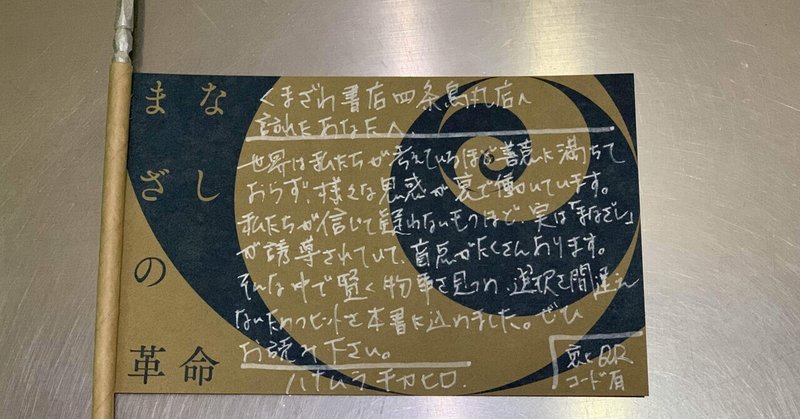 まなざしの革命
くまざわ書店四条烏丸店へ
訪れたあなたへ
世界は私たちが考えているほど善意に満ちて
おらず、様々な思惑が裏で働いています。
私たちが信じて疑わないものほど、実は「まなざし」
が誘導されていて、盲点がたくさんあります。
そんな中で賢く物事を見つめ、選択を間違え
ないためのヒントを本書に込めました。ぜひ
お読み下さい。
ハナムラチカヒロ.
裏にQR
コード有